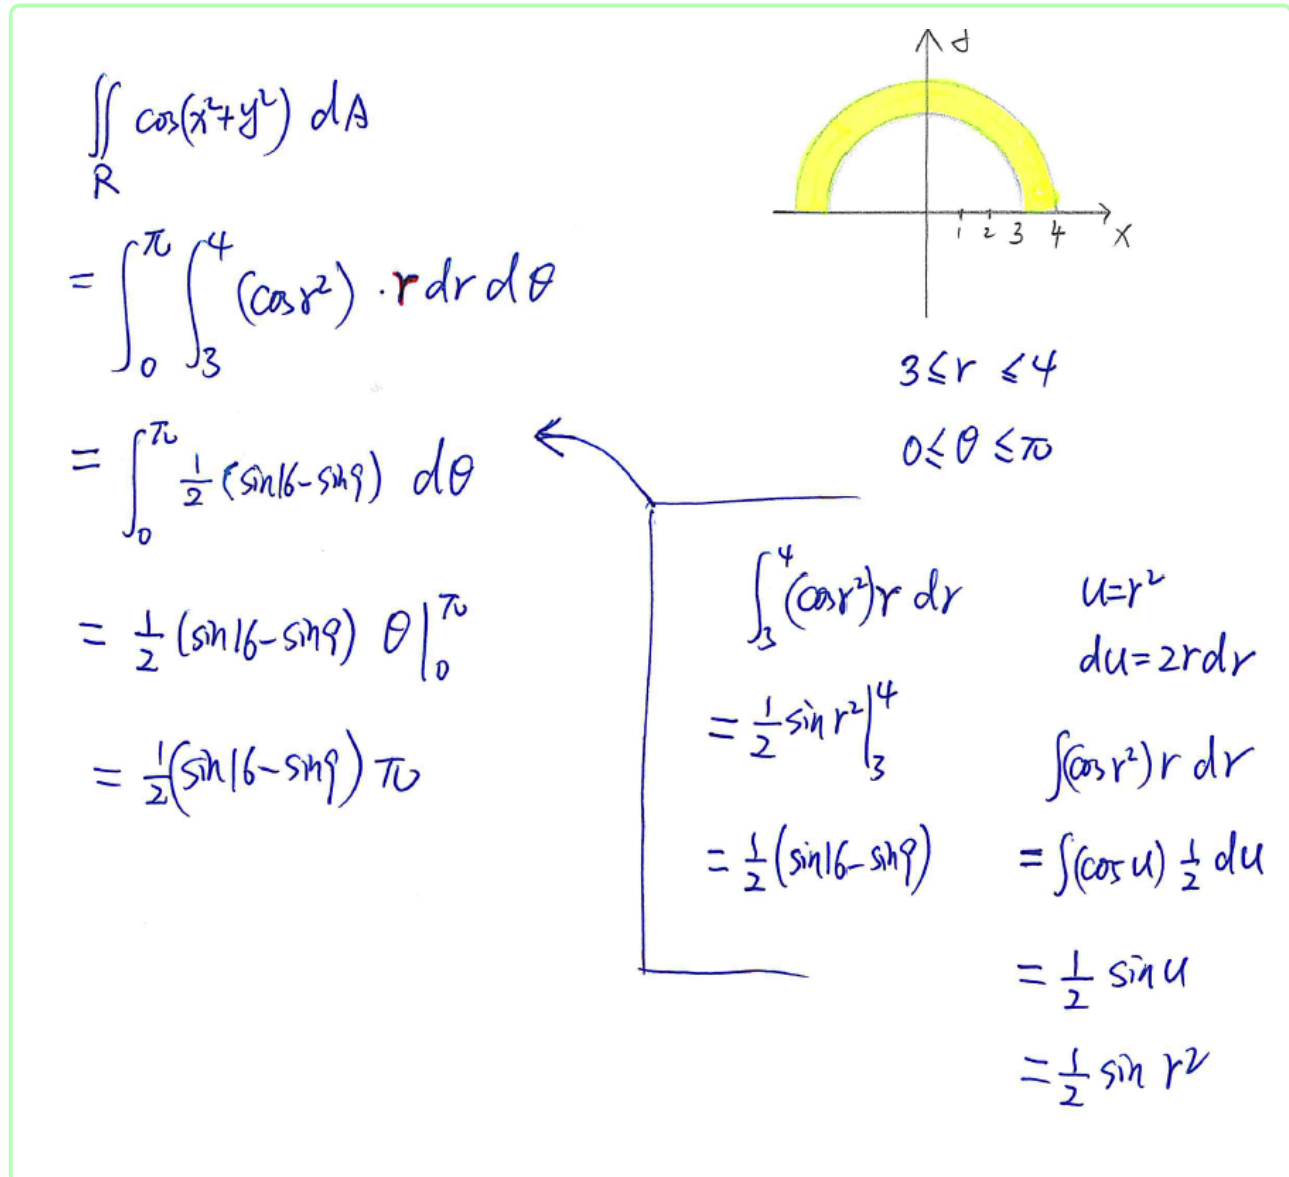 ∬_R cos(x²+y²) dA
= ∫_0^π ∫_3^4 (cos r²) · r dr dθ
= ∫_0^π ½ (sin16-sin9) dθ
= ½ (sin16-sin9) θ|_0^π
= ½ (sin16-sin9) π
y
1 2 3 4 x
3≤r≤4
0≤θ≤π
∫_3^4 (cos r²) r dr
= ½ sin r² |_3^4
= ½ (sin16-sin9)
u=r²
du=2rdr
∫(cos r²) r dr
= ∫(cos u) ½ du
= ½ sin u
= ½ sin r²